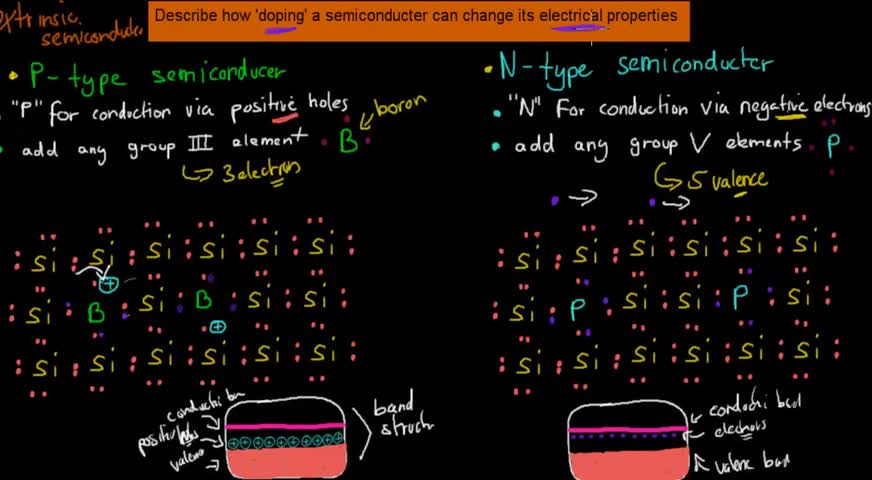 Describe how 'doping' a semiconducter can change its electrical properties
extrinsic
semiconductor
• P-type semiconducer
"P" for conduction via positive holes
boron
• add any group III element B
↳ 3 electrons
Si Si Si Si Si Si
Si B Si B Si Si
Si Si Si Si Si Si
conducti ban
positive holes
valence
band
struct
• N-type semiconducter
• "N" For conduction via negative electrons
• add any group V elements P
↳ 5 valence
Si Si Si Si Si Si
Si P Si P Si
Si Si Si Si Si Si
conducti band
electrons
valence band